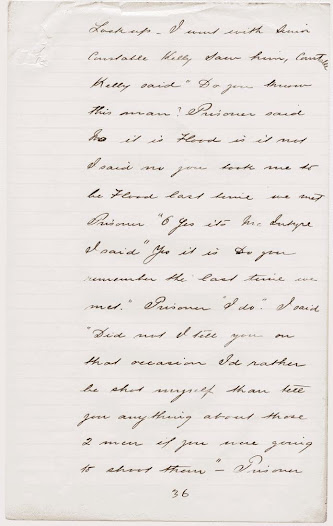 Lockup - I went with Senior
Constable Kelly saw him, Constable
Kelly said "Do you know
this man? Prisoner said
No it is Flood is it not
I said no you took me to
be Flood last time we met
Prisoner "O Yes its McIntyre
I said "Yes it is Do you
remember the last time we
met." Prisoner "I do". I said
"Did not I tell you on
that occasion I'd rather
be shot myself than tell
you anything about those
2 men if you were going
to shoot them" - Prisoner
36